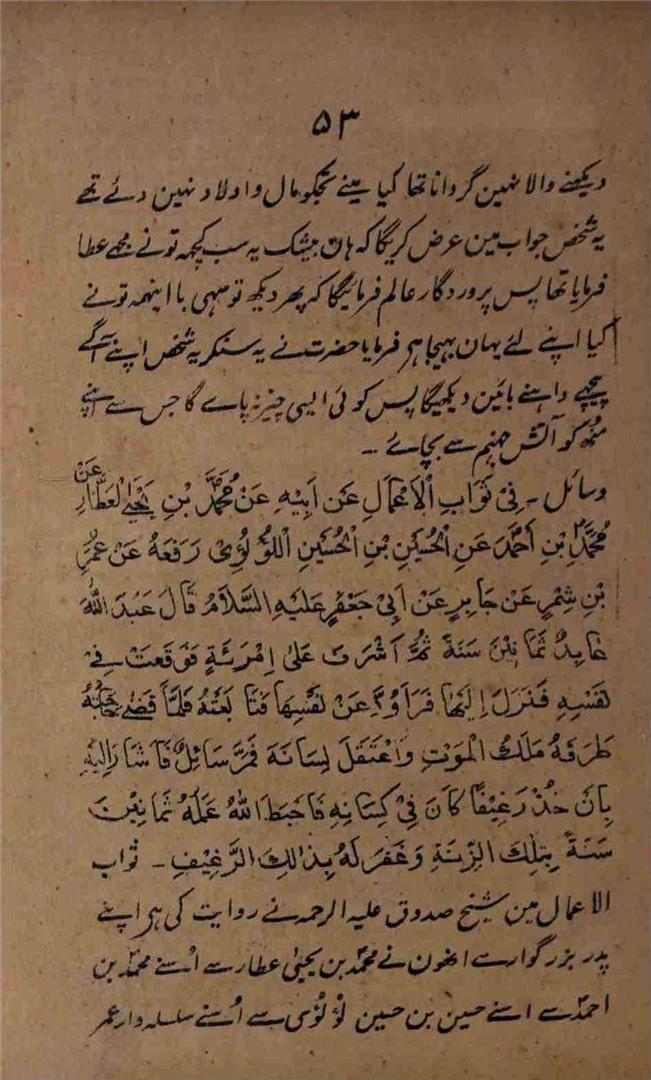 ۵۳
دیکھنے والا نہین گردانا تھا کیا مینے تجکو مال و اولاد نہین دئے تھے
یہ شخص جواب مین عرض کریگا کہ ہان بیشک یہ سب کچہہ تو نے مجھے عطا
فرمایا تھا پس پروردگار عالم فرمائیگا کہ پھر دیکھ تو سہی با اینہمہ تو نے
کیا اپنے لئے یہان بہیجا ہر فرمایا حضرت نے یہ سنکر یہ شخص اپنے آگے
پیچھے داہنے بائین دیکھیگا پس کوئی ایسی چیز نہ پاے گا جس سے اپنے
منھ کو آتش جہنم سے بچائے ۔۔
وسائل ۔ فِی ثَوَابِ الْاَعْمَالِ عَنْ اَبِیْهِ عَنْ مُحَمَّدِ بْنِ یَحْیَی الْعَطَّارِ عَنْ
مُحَمَّدِ بْنِ اَحْمَدَ عَنِ الْحُسَیْنِ بْنِ الْحُسَیْنِ اللُّؤْلُؤِیْ رَفَعَهُ عَنْ عُمَرِ
بْنِ شِمْرٍ عَنْ جَابِرٍ عَنْ اَبِیْ جَعْفَرٍ عَلَیْهِ السَّلَامُ قَالَ عَبَدَ اللّٰهَ
عَابِدٌ ثَمَانِیْنَ سَنَةً ثُمَّ اَشْرَفَ عَلیٰ اِمْرَئَةٍ فَوَقَعَتْ فِیْ
نَفْسِهٖ فَنَزَلَ اِلَیْهَا فَرَاوَدَهَا عَنْ نَفْسِهَا فَتَابَعَتْهُ فَلَمَّا قَضٰی حَاجَتَهُ
طَرَقَهُ مَلَكُ الْمَوْتِ وَاعْتَقَلَ لِسَانَهٗ فَمَرَّ سَائِلٌ فَاَشَارَ اِلَیْهِ
بِاَنْ خُذْ رَغِیْفًا کَانَ فِیْ کِسَائِهٖ فَاَحْبَطَ اللّٰهُ عَمَلَهُ ثَمَانِیْنَ
سَنَةً بِتِلْكَ الزِّنْیَةِ وَغَفَرَ لَهُ بِذَالِكَ الرَّغِیْفِ ۔ ثواب
الاعمال مین شیخ صدوق علیہ الرحمہ نے روایت کی ہر اپنے
پدر بزرگوار سے انھون نے محمد بن یحییٰ عطار سے اُسنے محمد بن
احمد سے اسنے حسین بن حسین لؤلؤی سے اُسنے سلسلہ وار عمر